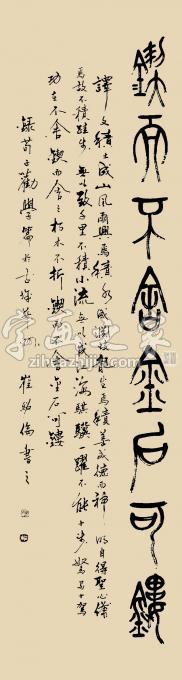 鍥而不舍金石可鏤
譯文積土成山風雨興焉積水成淵蛟龍生焉積善成德而神明自得聖心備
焉故不積跬步無以致千里不積小流無以成江海騏驥一躍不能十步駑馬十駕
功在不舍鍥而舍之朽木不折鍥而不舍金石可鏤
錄荀子勸學篇於古城 崔 書之
字画之家
zihuazhijia.com